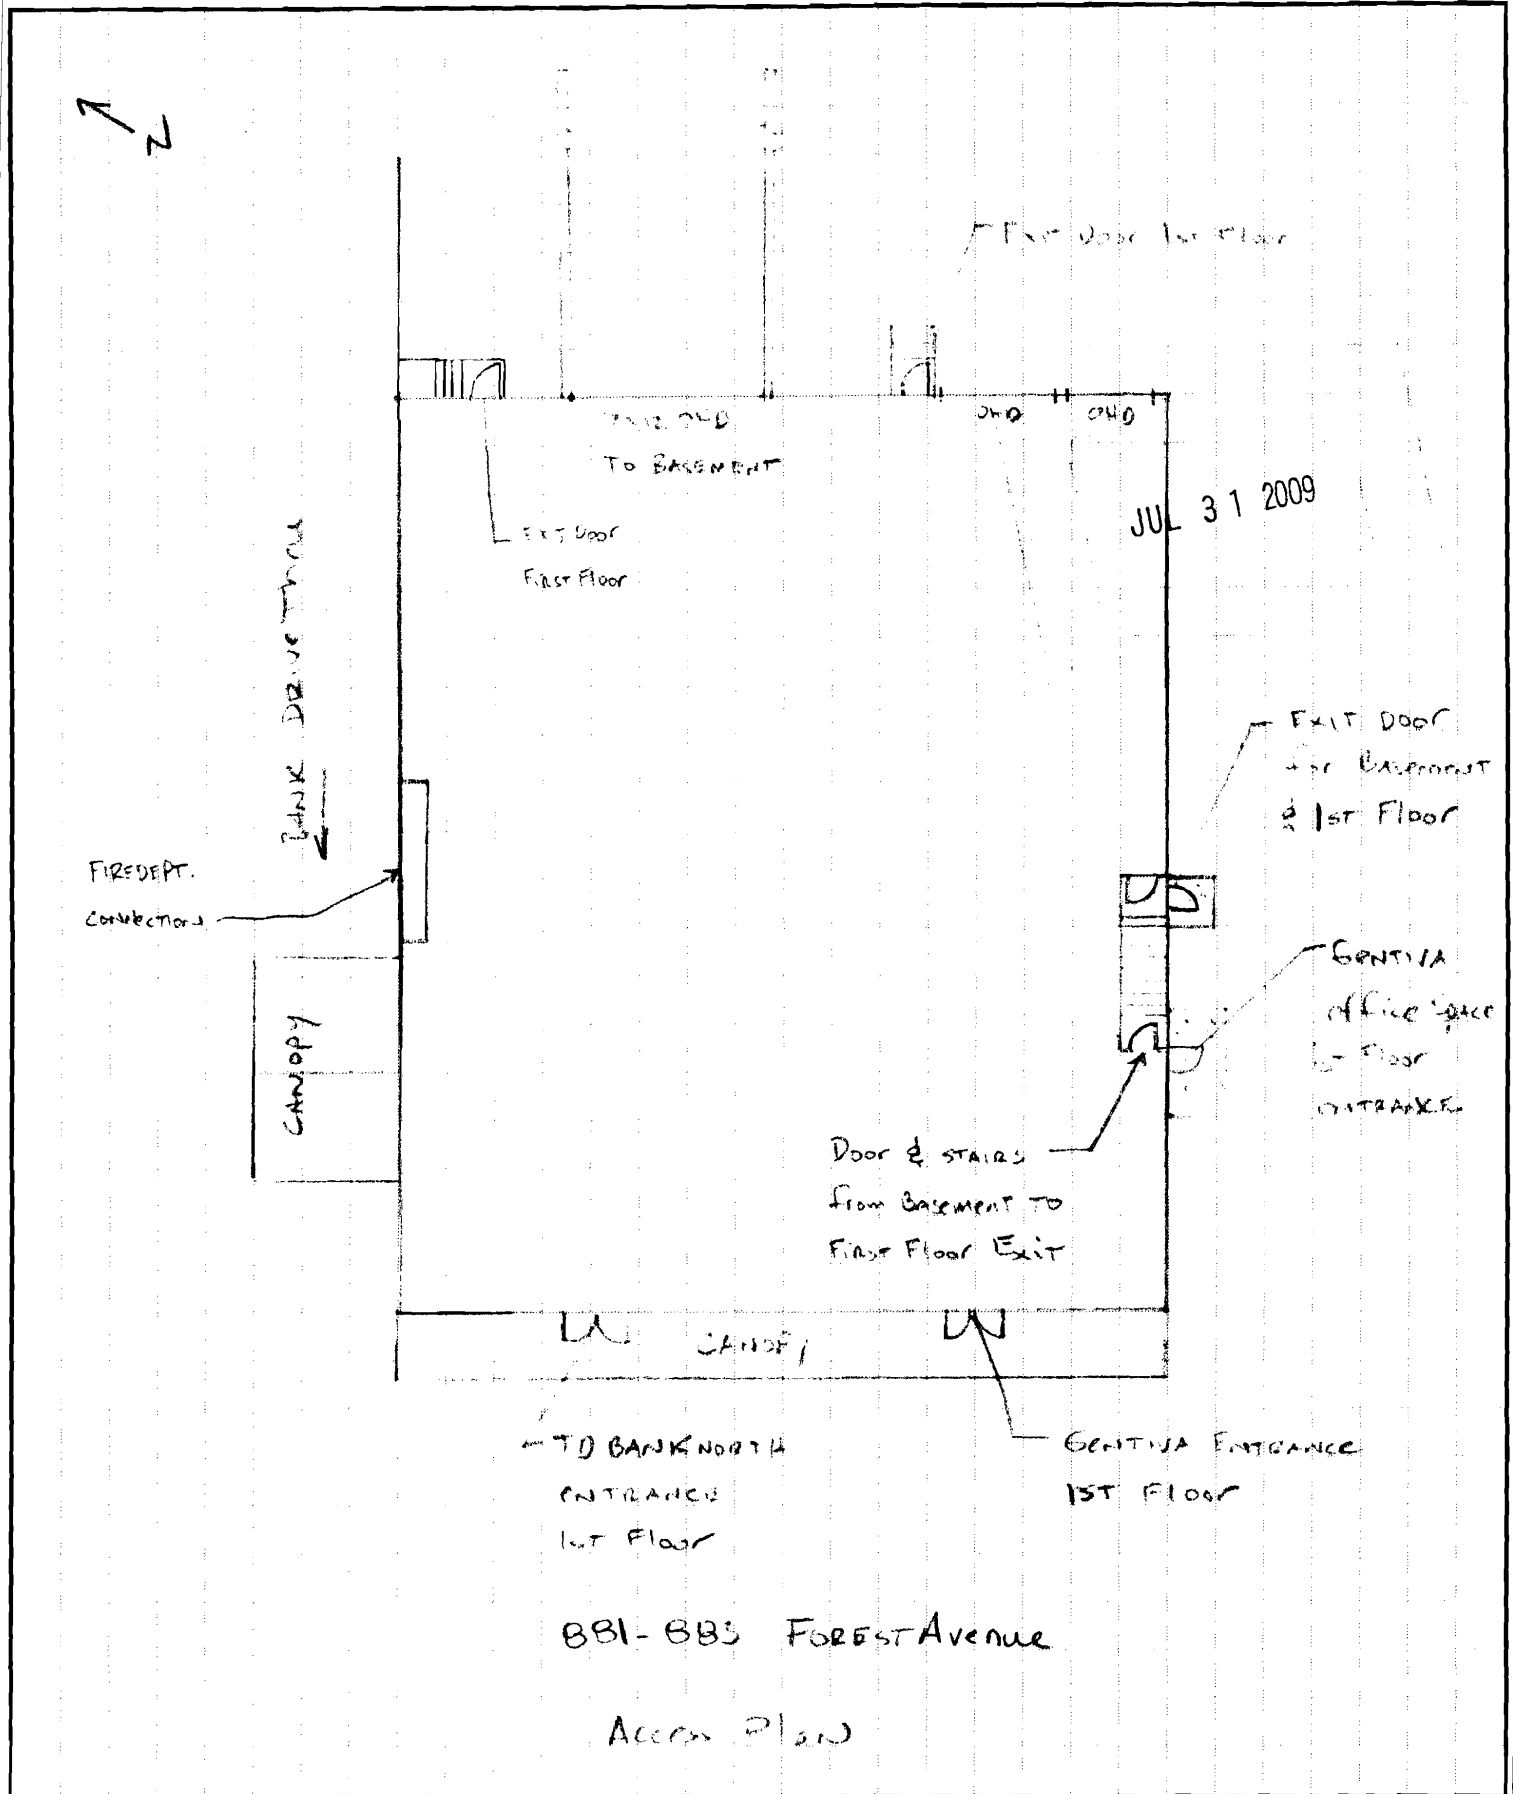 N
Door 1st Floor
OHD
TO BASEMENT
OHD
OHD
JUL 31 2009
EXT Door
First Floor
BANK DRIVE Thru
EXIT DOOR
for BASEMENT
& 1ST Floor
FIRE DEPT.
Connection
GENTIVA
office space
1st Floor
ENTRANCE
CANOPY
Door & STAIRS
from Basement TO
First Floor Exit
CANOPY
TD BANKNORTH
ENTRANCE
1st Floor
GENTIVA ENTRANCE
1ST Floor
FOREST Avenue
Access Plan